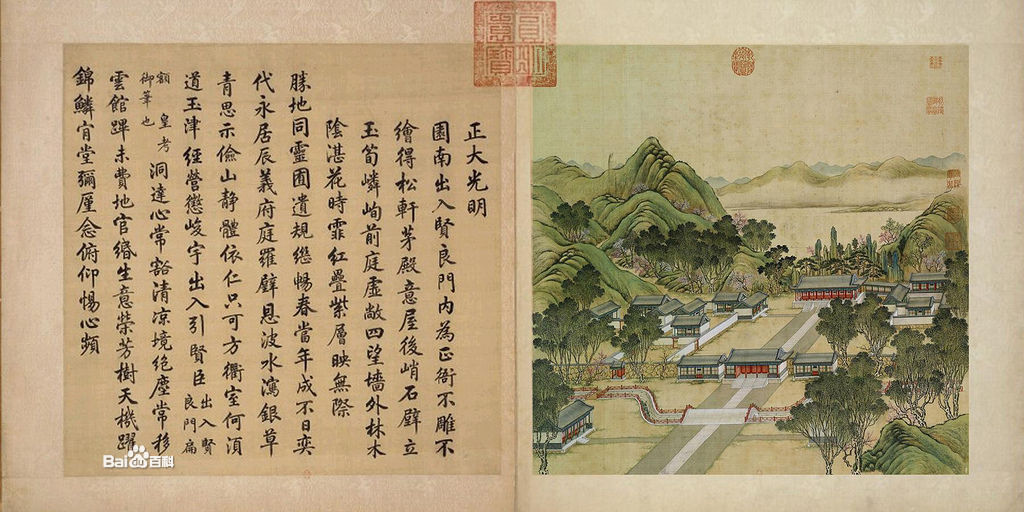 正大光明
園南出入賢良門內為正衙不雕不
繪得松軒茅殿意屋後峭石壁立
玉筍嶙峋前庭虛敞四望墻外林木
陰湛花時霏紅疊紫層映無際
勝地同靈囿遺規繼暢春當年成不日奕
代永居辰義府庭羅壁恩波水瀉銀草
青思示儉山靜體依仁只可方衢室何須
道玉津經營懲峻宇出入引賢臣出入賢良門扁
額皇考御筆也洞達心常豁清凉境絕塵常移
雲館蹕未費地官緡生意榮芳樹天機躍
錦鱗宵堂彌厪念俯仰惕心頻
Bai百科